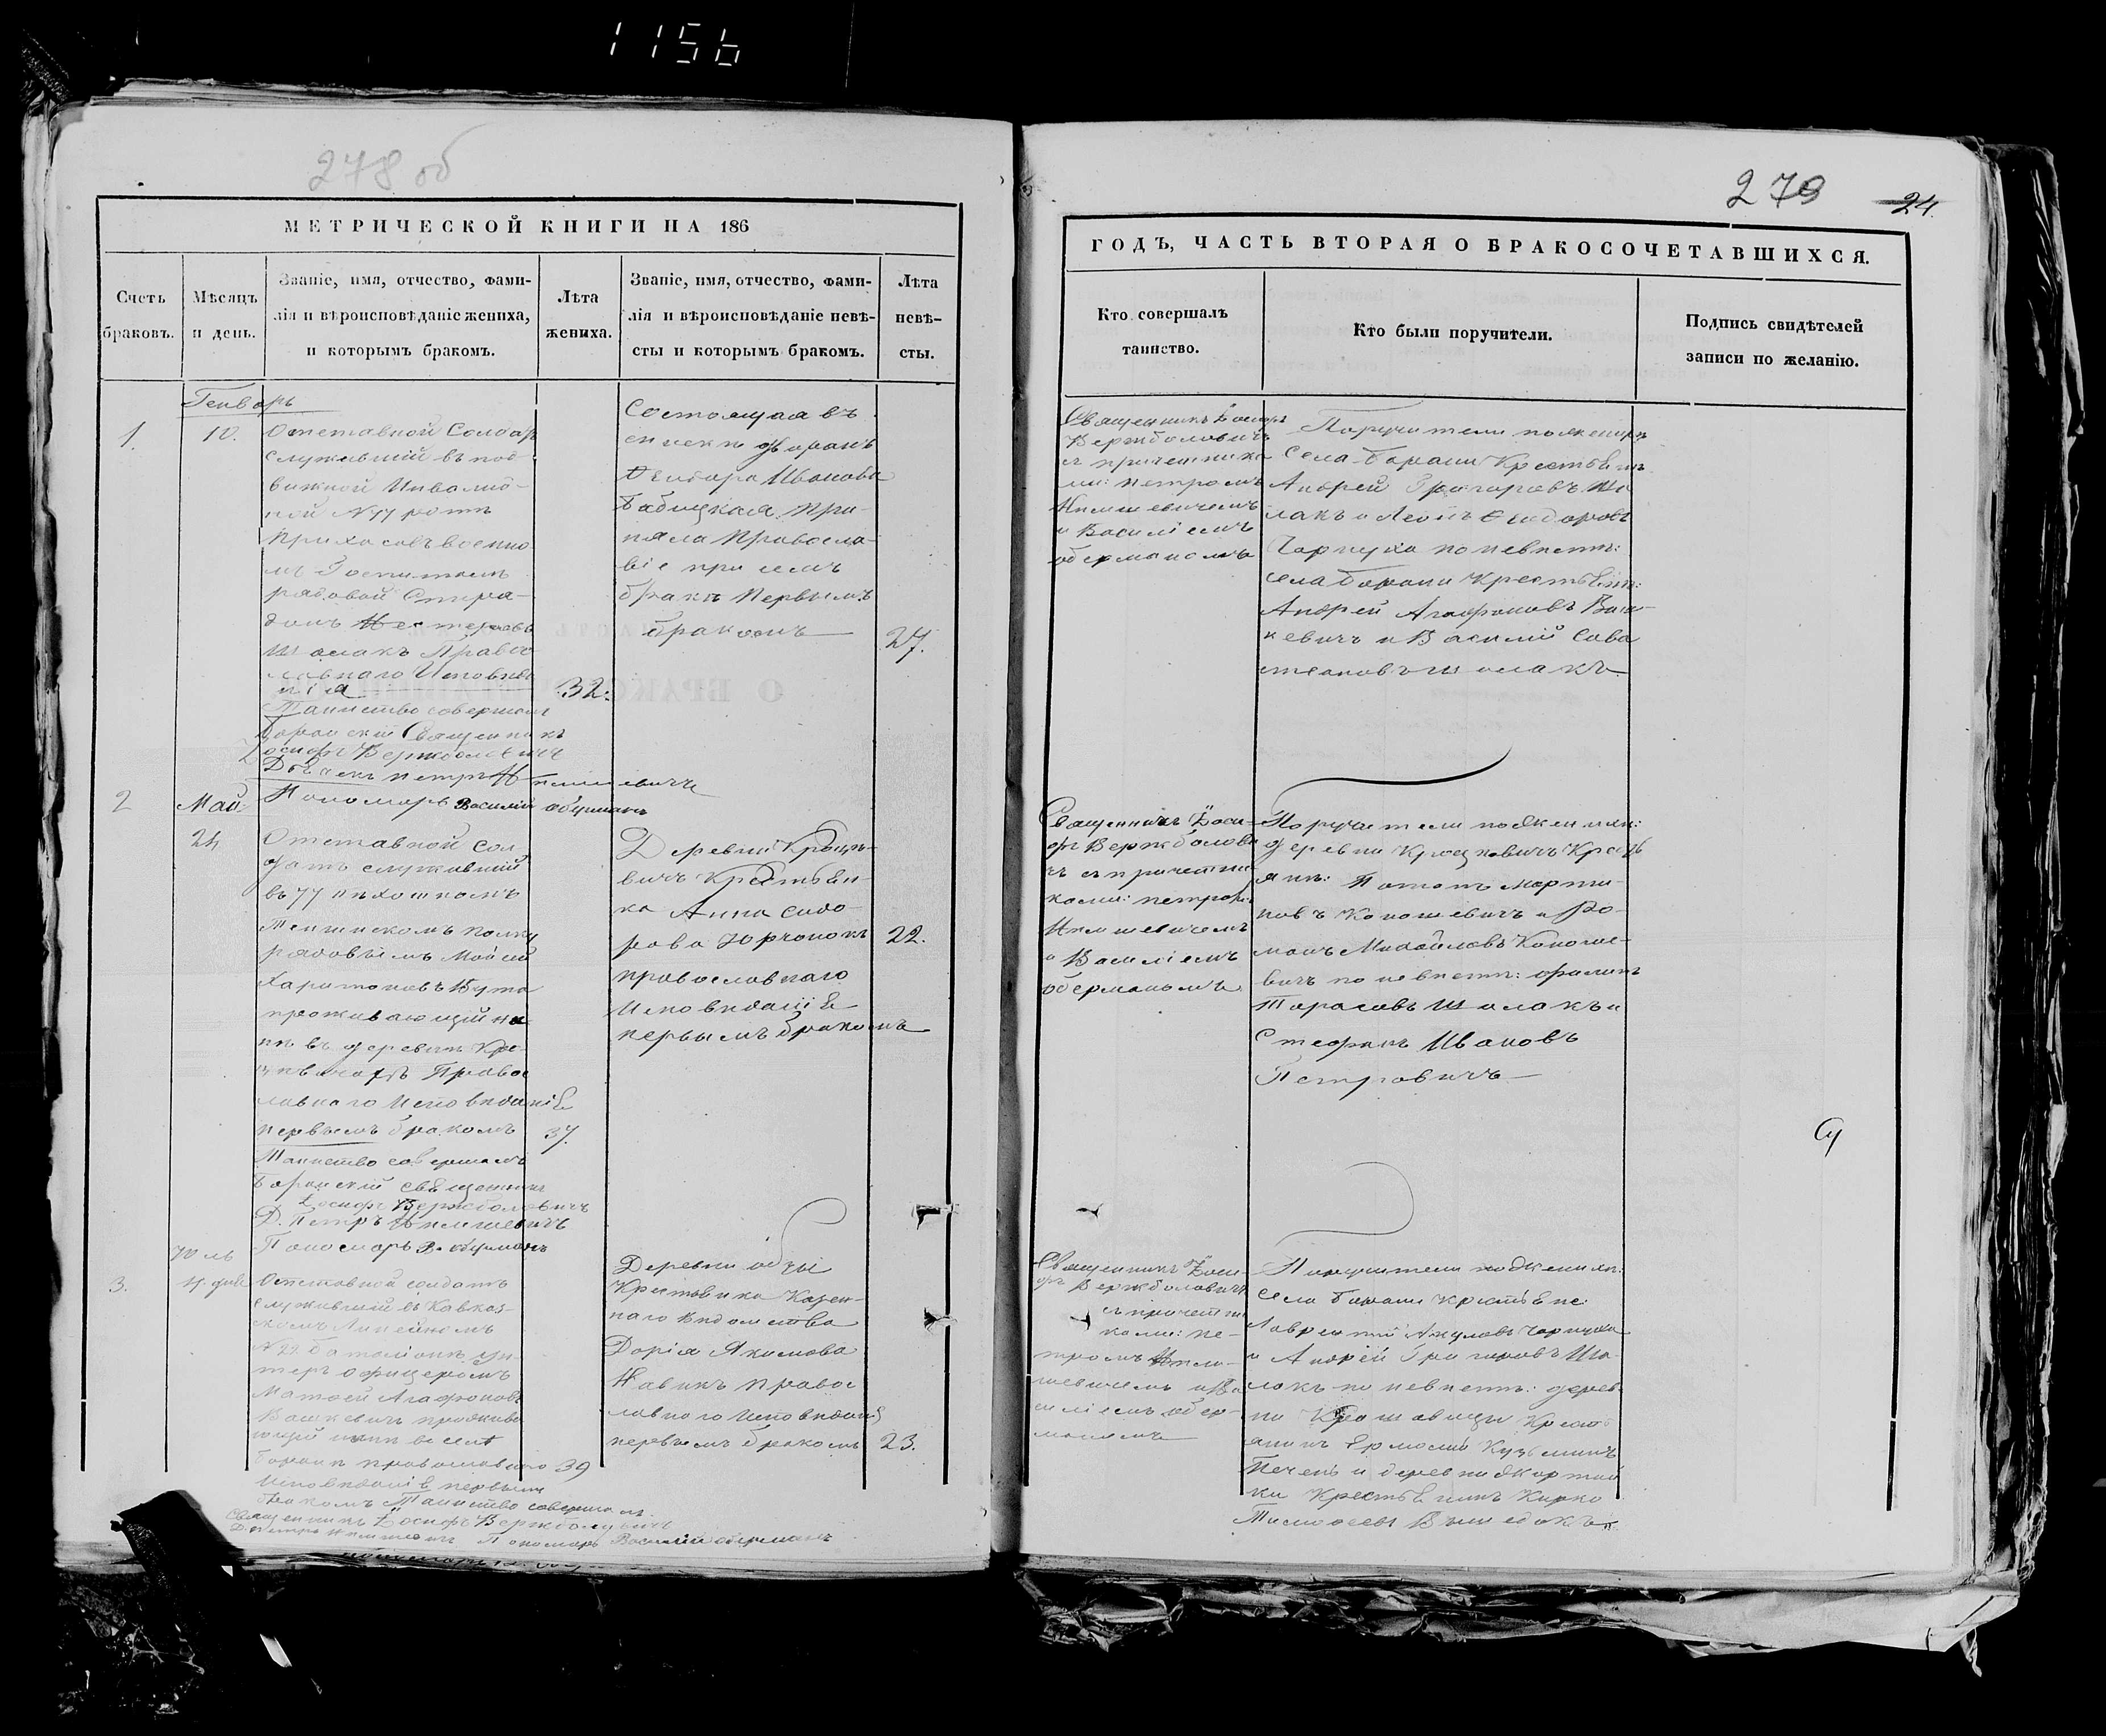 1156
278 об
МЕТРИЧЕСКОЙ КНИГИ НА 186
Счетъ
браковъ.
Мѣсяцъ
и день.
Званіе, имя, отчество, фами-
лія и вѣроисповѣданіе жениха,
и которымъ бракомъ.
Лѣта
жениха.
Званіе, имя, отчество, фами-
лія и вѣроисповѣданіе невѣ-
сты и которымъ бракомъ.
Лѣта
невѣ-
сты.
Генварь
1.
10.
Отставной Солдат
служившій въ под
вижной Инвалид-
ной №77 ротѣ
рядовой Спири-
донъ Нестеровъ
Шолакъ Право
славнаго Исповѣда
нія
32.
Таинство совершал
Священникъ
Іосифъ Вержболовичъ
Дьячекъ Петръ
Пономарь Василій Оберманъ
Состоящая въ
Бабицкая При-
няла Правосла-
віе при семъ
бракѣ Первымъ
бракомъ
27.
2
Май
24
Отставной сол
датъ служившій
въ 77 пѣхотномъ
Тенгинскомъ полку
рядовымъ Мойсей
Харитоновъ Бута
проживающій ны
нѣ въ деревнѣ Кро
Право
славнаго Исповѣданія
первымъ бракомъ
37.
Таинство совершалъ
священникъ
Іосифъ Вержболовичъ
Д. Петръ
Пономарь В. Оберманъ
Деревни
вичъ Крестьян-
ка Анна Сидо-
рова Юрчонокъ
православнаго
Исповѣданія
первымъ бракомъ
22.
Юль
3.
4. дня
Отставной солдатъ
служившій въ Кавказ-
скомъ Линейномъ
№29. баталіонѣ ун-
теръ офицеромъ
Матѳей Агафоновъ
Вашкевичъ прожива
ющій нынѣ въ селѣ
православнаго
39
Исповѣданія первымъ
бракомъ Таинство совершалъ
Священникъ Іосифъ Вержболовичъ
Пономарь Василій Оберманъ
Деревни
Крестьянка Казен-
наго вѣдомства
Дарія Якимова
Навикъ право
славнаго Исповѣданія
первымъ бракомъ
23.
279
24.
ГОДЪ, ЧАСТЬ ВТОРАЯ О БРАКОСОЧЕТАВШИХСЯ.
Кто совершалъ
таинство.
Кто были поручители.
Подпись свидѣтелей
записи по желанію.
Священникъ Іосифъ
Вержболовичъ
съ причетника
ми: Петромъ
и Василіемъ
Оберманомъ
Поручители по женихѣ
Села Крестьяне
Андрей Григоровъ Шо
лакъ и Ѳеодоровъ
Чарнуха по невѣстѣ:
села Крестьяне:
Андрей Агафоновъ Ваш-
кевичъ и Василій Сава
стеановъ Шолакъ
Священникъ Іоси-
фъ Вержболови
чъ съ причетни
ками: Петромъ
и Василіемъ
Оберманомъ
Поручители по женихѣ:
деревни
Потапъ Марти-
новъ Коношевичъ и Ро-
манъ Михайловъ Коноше-
вичъ по невѣстѣ: Филипъ
Тарасовъ Шолакъ и
Стефанъ Ивановъ
Петровичъ
Священникъ Іоси-
фъ Вержболовичъ
съ причетни
ками: Пе-
тромъ
и Ва
силіемъ Обер-
маномъ
Поручители по женихѣ:
Села Крестьяне:
Лаврентій Чарнуха
и Андрей Григоровъ Шо-
лакъ по невѣстѣ: дерев-
ни Кресть
янинъ Ермолай Кузьминъ
Печень и деревни
ки Крестьянинъ
Тимоѳеевъ